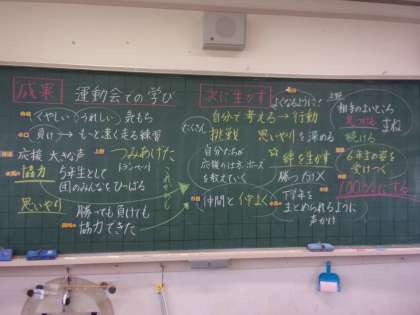 成果
運動会での学び
くやしい うれしい 気もち
負け→もっと速く走る練習
応援 大きな声
つみあげた
トランペット
協力
5年生として
団のみんなをひっぱる
これからも
思いやり
勝っても負けても
協力できた
次に生かす
よくなるように!
自分で考える→行動
たくさん
挑戦
思いやりを深める
自分たちが
応援のし方、ポーズ
を教えていく
☆絆を生かす
勝つだけ×
仲間と仲よく
下学年を
まとめられるように
声かけ
相手のよいところ
見つける
まね
続ける
6年生の姿を
受けつぐ
100%にする